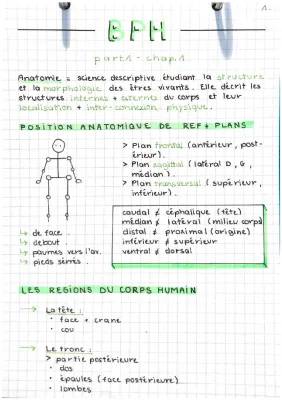 1.
BPH
part 1 - chap 1
Anatomie = science descriptive étudiant la structure
et la morphologie des êtres vivants. Elle décrit les
structures internes + externes du corps et leur
localisation + inter-connexion physique.
POSITION ANATOMIQUE DE REF + PLANS
> Plan frontal (antérieur, post-
érieur).
> Plan sagittal (latéral D, G,
médian).
> Plan transversal (supérieur,
inférieur).
↳ de face.
↳ debout.
↳ paumes vers l'av.
↳ pieds serrés.
caudal ≠ céphalique (tête)
médian ≠ latéral (milieu corps)
distal ≠ proximal (origine)
inférieur ≠ supérieur
ventral ≠ dorsal
LES REGIONS DU CORPS HUMAIN
→ La tête :
• face + crane
• cou
→ Le tronc :
> partie postérieure
• dos
• épaules (face postérieure)
• lombes